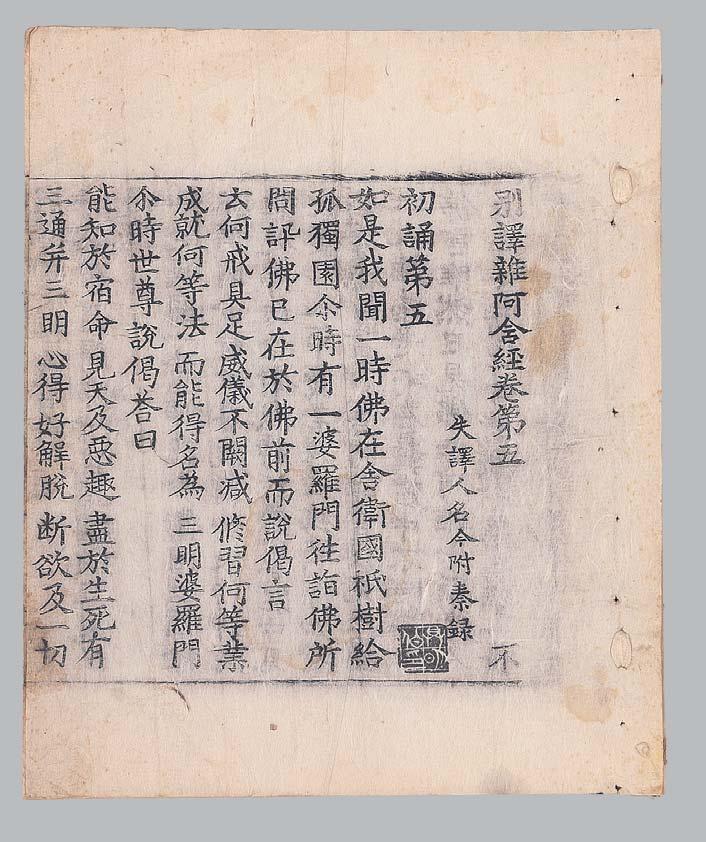 別譯雜阿含經卷第五 不
失譯人名今附秦録
初誦第五
如是我聞一時佛在舍衛國祇樹給
孤獨園尒時有一婆羅門往詣佛所
問評佛已在於佛前而說偈言
玄何戒具足威儀不闕减 修習何等業
成就何等法 而能得名為 三明婆羅門
尒時世尊說偈荅曰
能知於宿命 見天及惡趣 盡於生死有
三通并三明 心得好解脫 断欲及一切